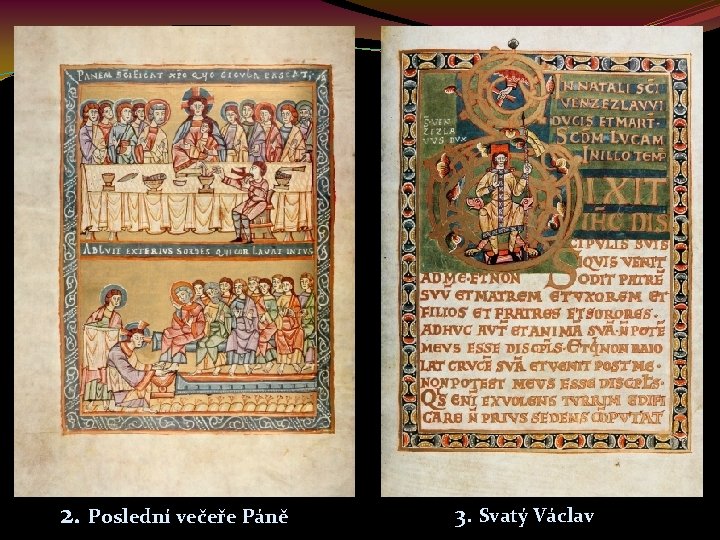 PANEM SCIFICAT XPO QVO SECVLA PASCAT
ABLVIT EXTERIVS SORDES QVI COR LAVAT INTVS
2. Poslední večeře Páně
IN NATALI SCI
VENZEZLAVVI
DVCIS ET MART·
SCDM LVCAM
IN ILLO TEMP
DIXIT
IHC DIS
CIPVLIS SVIS
SIQVIS VENIT
AD ME·ET NON ODIT PATRE
SVV ET MATREM ET VXOREM ET
FILIOS ET FRATRES ET SORORES·
ADHVC AVT ET ANIMA SVA·N POTE
MEVS ESSE DISCPLS·ET QI NON BAIO
LAT CRVCE SVA ET VENIT POST ME·
NON POTEST MEVS ESSE DISCPLS·
QS ENI EX VOLENS TVRRIM EDIFI
CARE N PRIVS SEDENS CMPVTAT
3. Svatý Václav